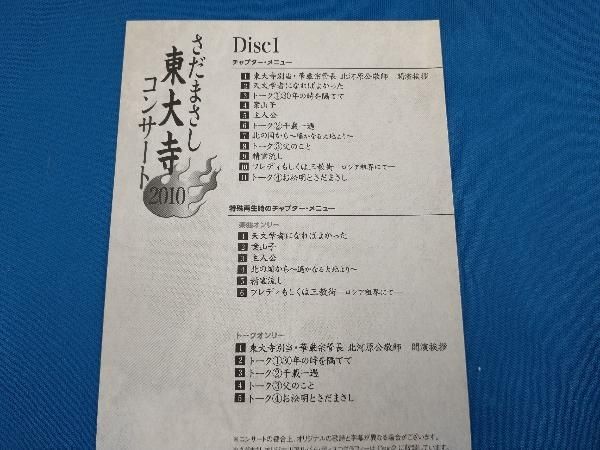 さだまさし
東大寺
コンサート
2010
Disc1
チャプター・メニュー
1 東大寺別当・華厳宗管長 北河原公敬師 開演挨拶
2 天文学者になればよかった
3 トーク①30年の時を隔てて
4 案山子
5 主人公
6 トーク②千載一遇
7 北の国から〜遙かなる大地より〜
8 トーク③父のこと
9 精霊流し
10 フレディもしくは三教街―ロシア租界にて―
11 トーク④お松明とさだまさし
特殊再生時のチャプター・メニュー
楽曲オンリー
1 天文学者になればよかった
2 案山子
3 主人公
4 北の国から〜遙かなる大地より〜
5 精霊流し
6 フレディもしくは三教街―ロシア租界にて―
トークオンリー
1 東大寺別当・華厳宗管長 北河原公敬師 開演挨拶
2 トーク①30年の時を隔てて
3 トーク②千載一遇
4 トーク③父のこと
5 トーク④お松明とさだまさし
※コンサートの都合上、オリジナルの歌詩と字幕が異なる場合がございます。